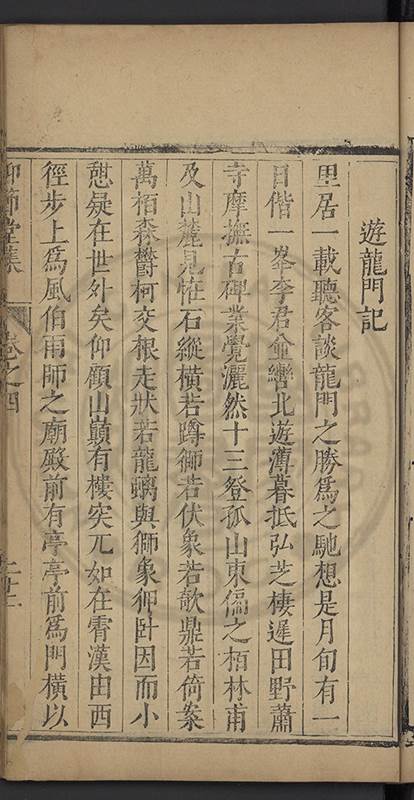 遊龍門記
里居一載聽客談龍門之勝爲之馳想是月旬有一
日偕一峯李君並轡北遊薄暮抵弘芝棲遲田野蕭
寺摩撫古碑業覺灑然十三登孤山東偏之栢林甫
及山麓見恠石縱橫若蹲獅若伏象若欹鼎若倚案
萬栢森欝柯交根走狀若龍螭與獅象狎卧因而小
憇疑在世外矣仰顧山巔有樓突兀如在霄漢由西
徑步上爲風伯雨師之廟殿前有亭亭前爲門橫以
仰節堂集 卷之四 二十二